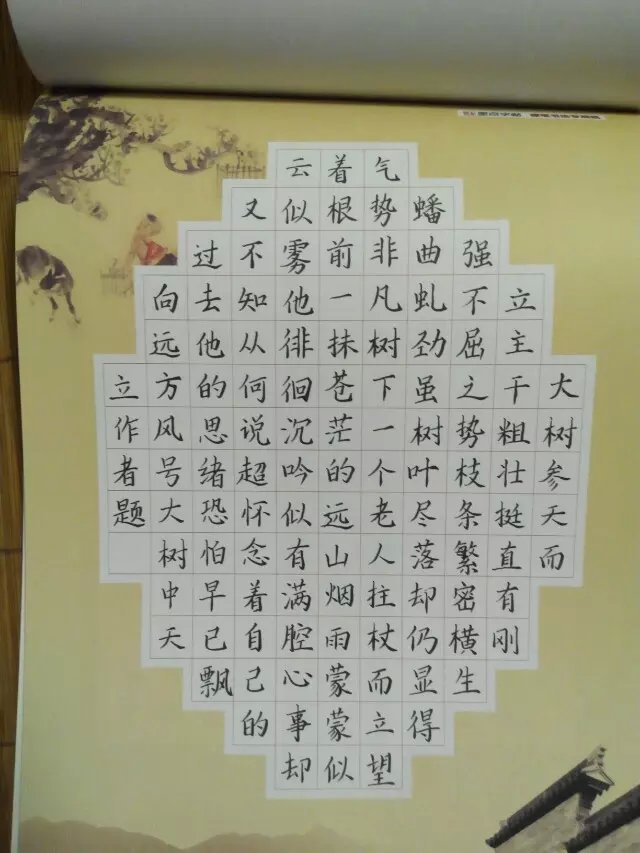 大树参天而
立主干粗壮挺直有刚
强不屈之势枝条繁密横生
蟠曲虬劲虽树叶尽落却仍显得
气势非凡树下一个老人拄杖而立望
着根前一抹苍茫的远山烟雨蒙蒙似
云似雾他徘徊沉吟似有满腔心事却
又不知从何说超怀念着自己的
过去他的思绪恐怕早已飘
向远方风号大树中天
立作者题